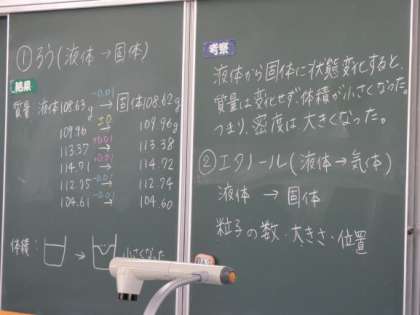 ①ろう(液体→固体)
結果
質量 液体108.63g -0.01→ 固体108.62g
109.96 ±0→ 109.96g
113.37 +0.01→ 113.38
114.71 +0.01→ 114.72
112.75 -0.01→ 112.74
104.61 -0.01→ 104.60
体積: → 小さくなった
考察
液体から固体に状態変化すると、
質量は変化せず体積が小さくなった。
つまり、密度は大きくなった。
②エタノール(液体→気体)
液体 → 固体
粒子の数・大きさ・位置